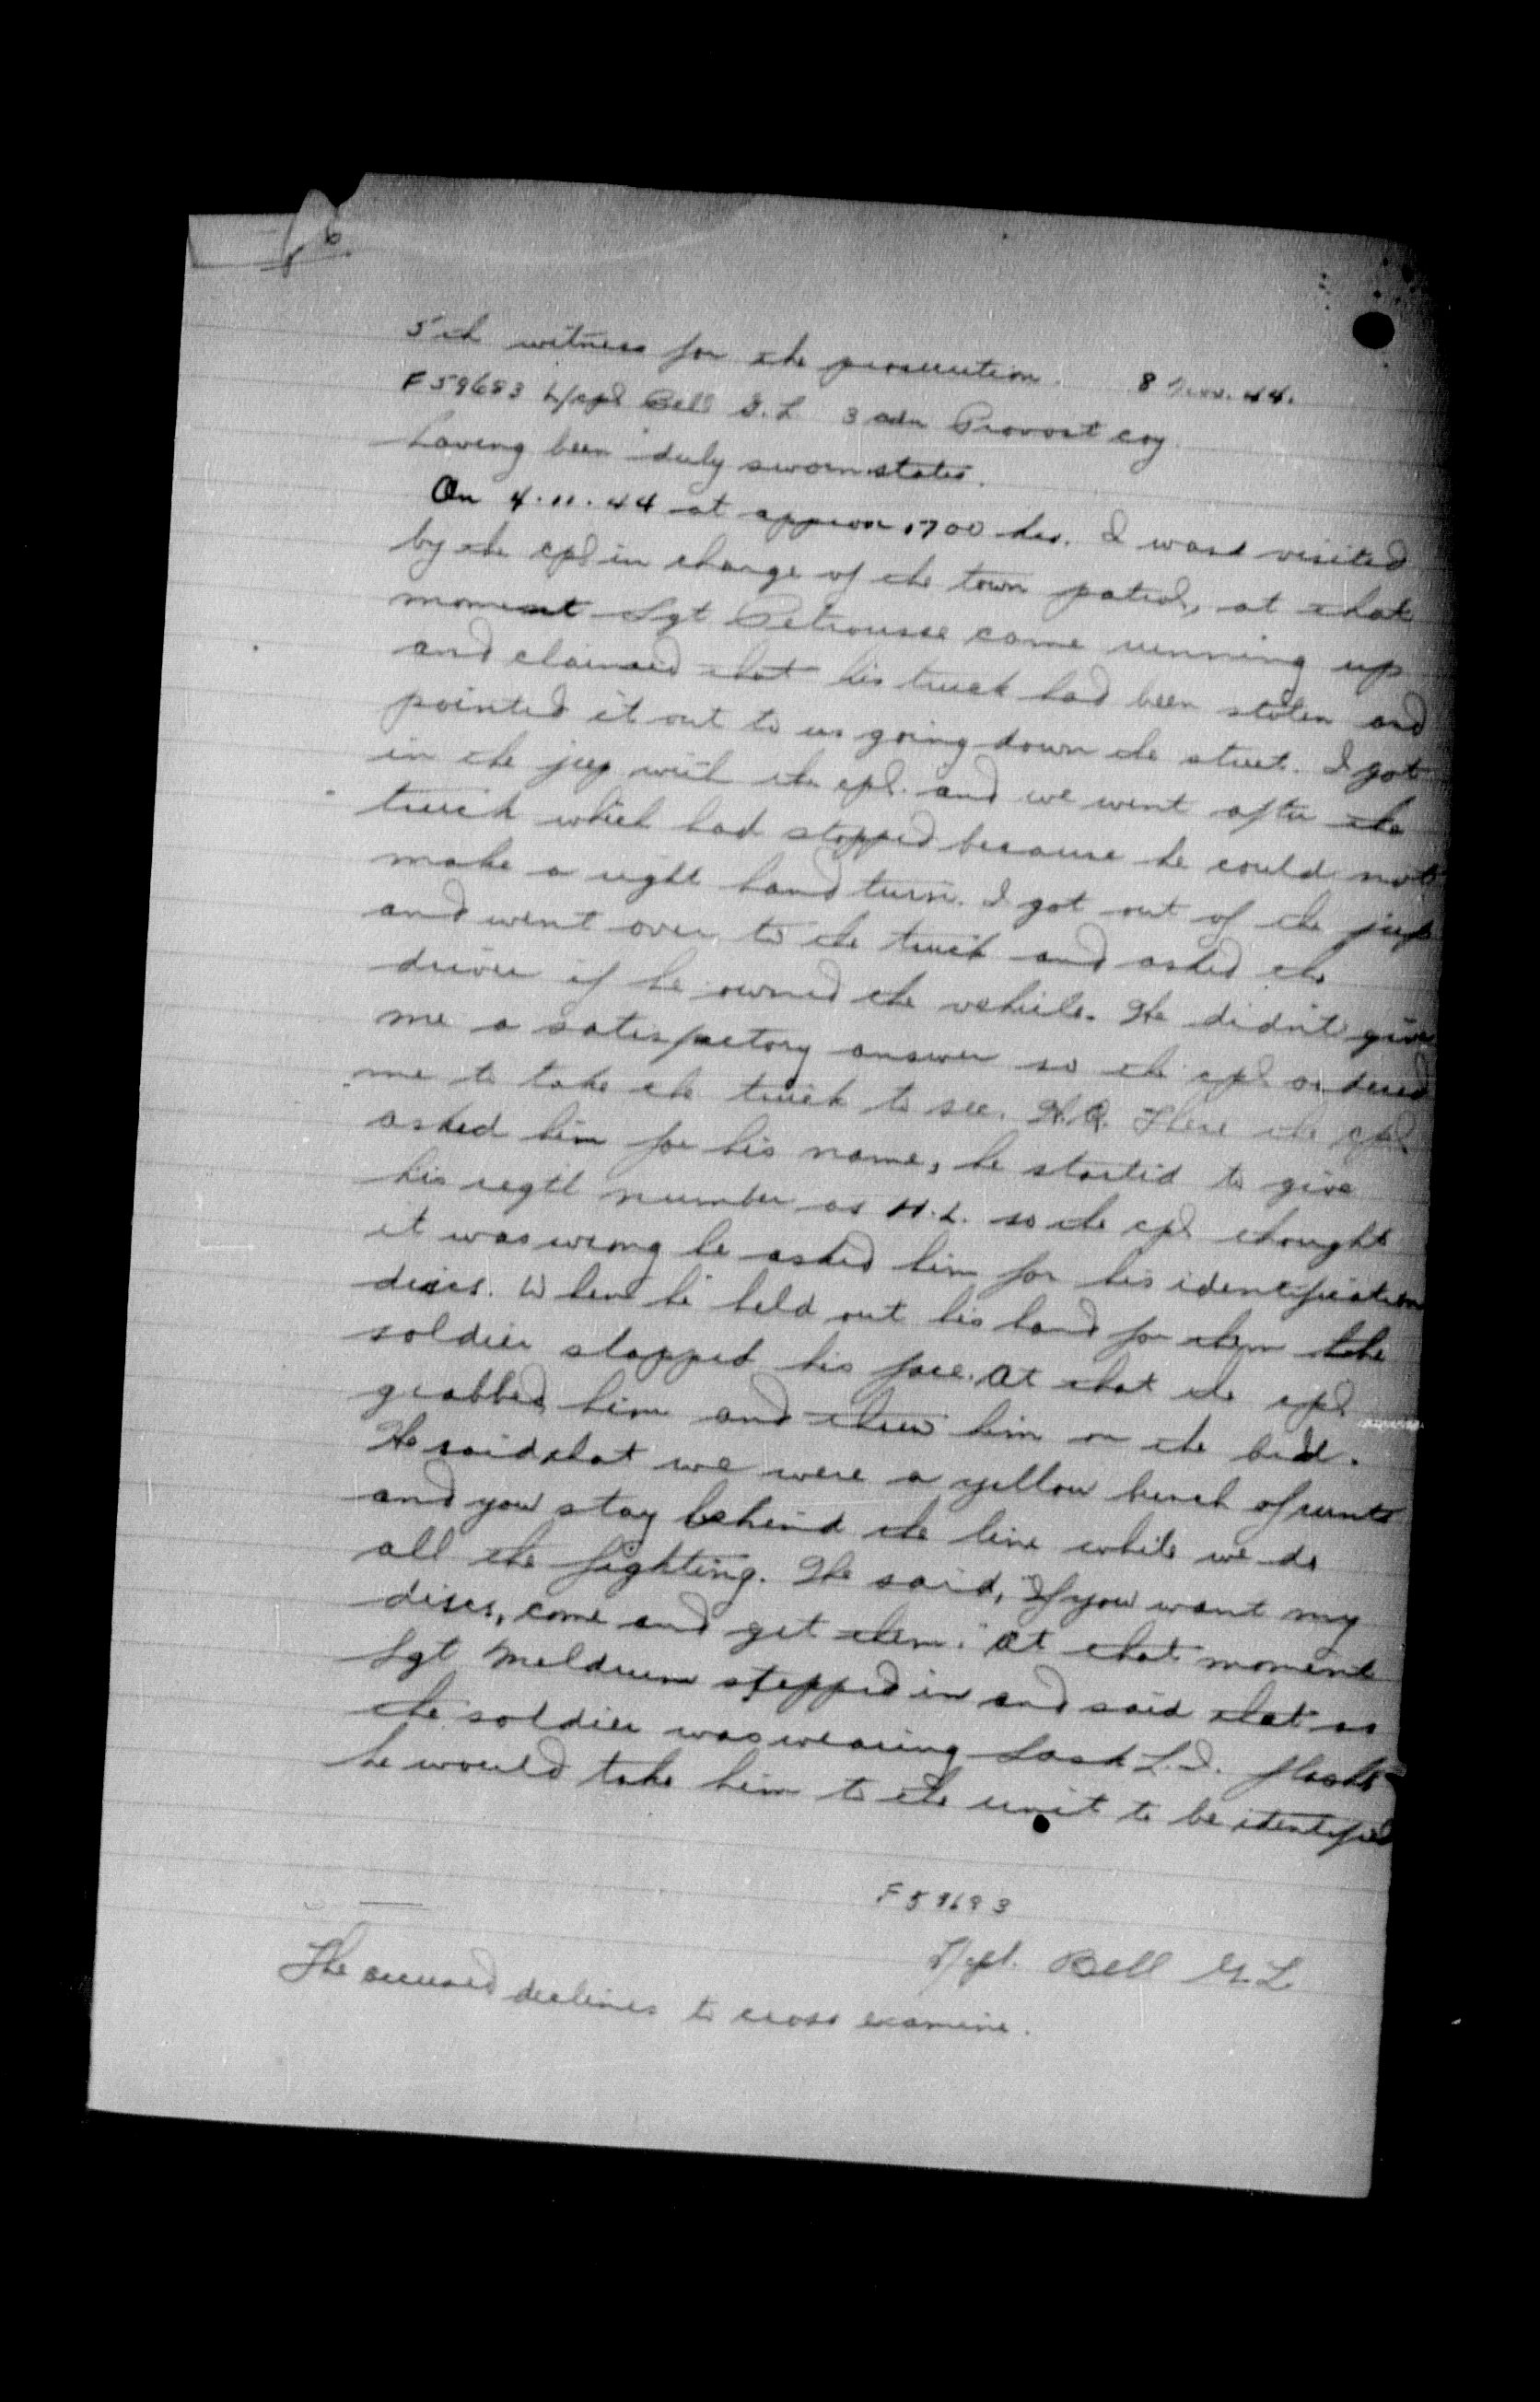 6.
5th witness for the prosecution. 8 Nov. 44.
F 59683 L/cpl Bell G. L. 3 Cdn Provost Coy
having been duly sworn states.
On 4.11.44 at approx 1700 hrs. I was visited
by the cpl in charge of the town patrol, at that
moment Sgt came running up
and claimed that his truck had been stolen and
pointed it out to us going down the street. I got
in the jeep with the cpl. and we went after the
truck which had stopped because he could not
make a right hand turn. I got out of the jeep
and went over to the truck and asked the
driver if he owned the vehicle. He didn't give
me a satisfactory answer so the cpl ordered
me to take the truck to sec. H.Q. There the cpl
asked him for his name, he started to give
his regtl number as H.L. so the cpl thought
it was wrong he asked him for his identification
discs. When he held out his hand for them the
soldier slapped his face. At that the cpl
grabbed him and threw him on the bed.
He said that we were a yellow bunch of
and you stay behind the line while we do
all the fighting. He said, "If you want my
discs, come and get them." At that moment
Sgt Meldrum stepped in and said that as
the soldier was wearing Sask L.I. flashes
he would take him to the unit to be identified
F 59683
L/cpl. Bell G. L.
The accused declines to cross examine.